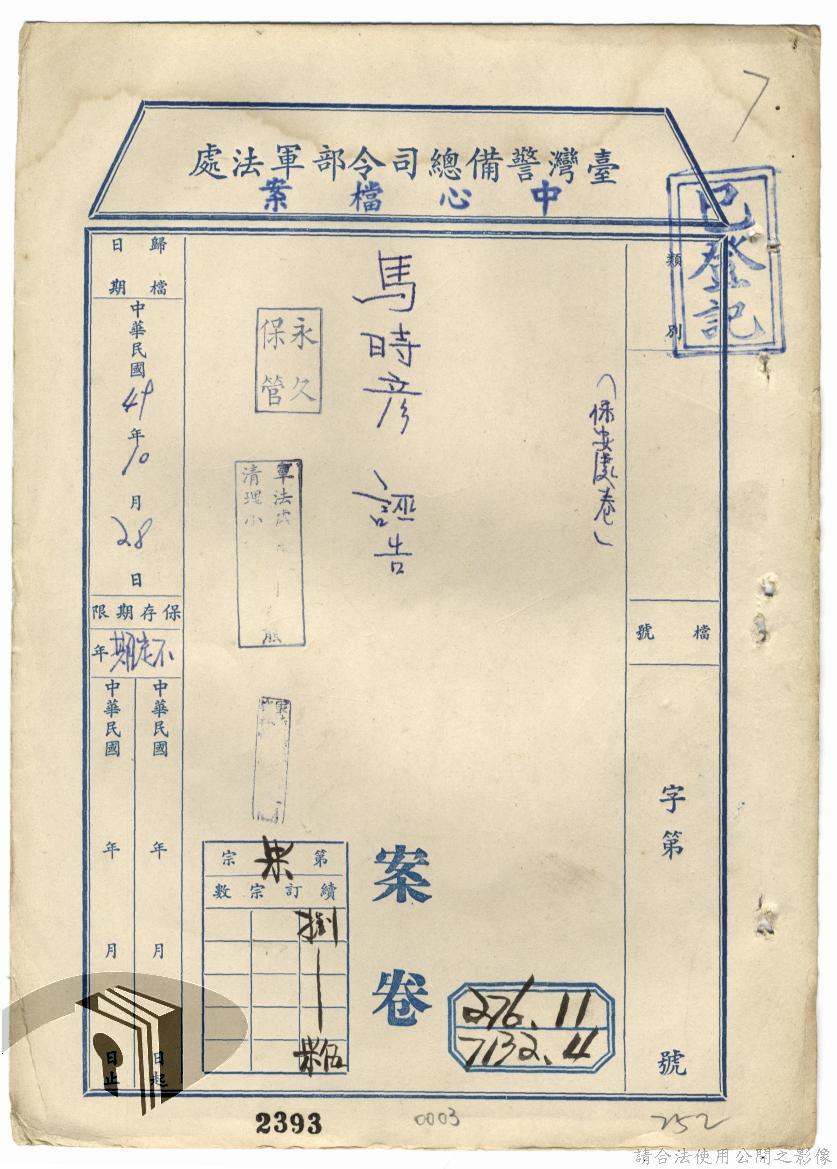 7
處法軍部令司總備警灣臺
案檔心中
已登記
類別
檔號
字第
號
(保安處卷)
馬時彥 誣告
案卷
永久
保管
軍法
清理小
第 宗
續訂宗數
捌
276.11
7132.4
歸檔
日期
中華民國49年10月28日
保存期限
不定期年
中華民國 年 月 日起
中華民國 年 月 日止
2393
0003
252
請合法使用公開之影像